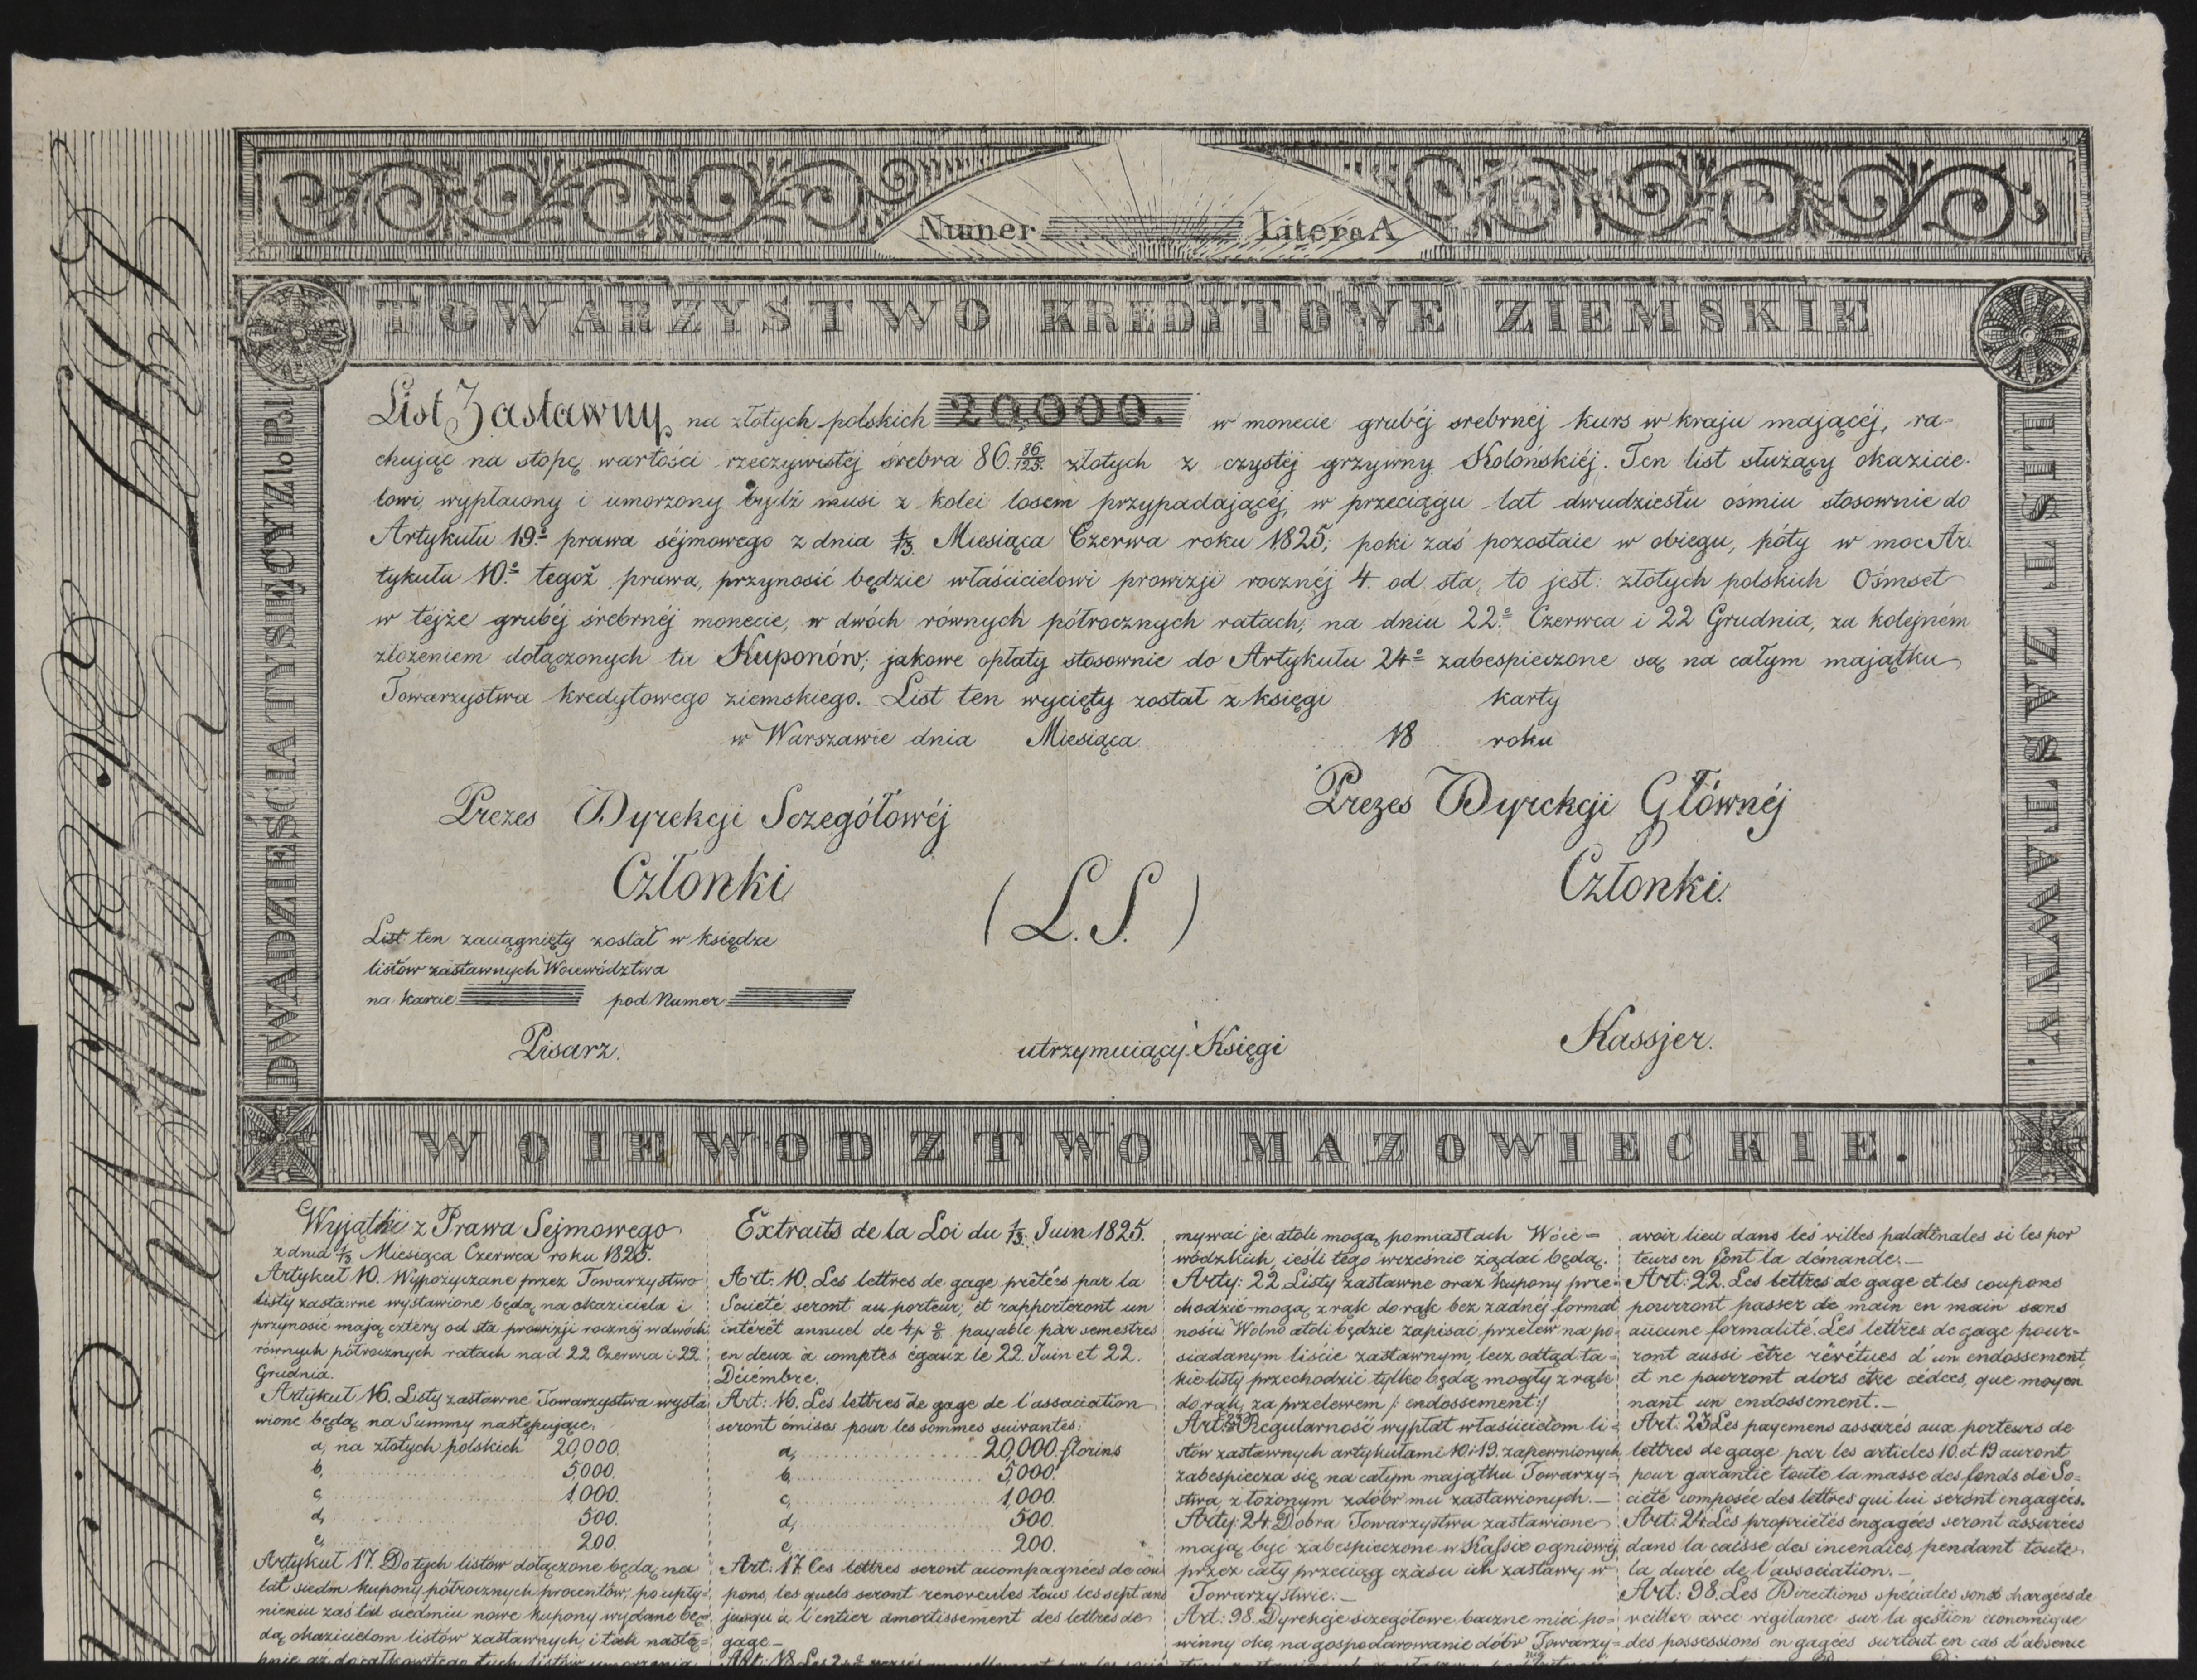 Numer Litera A
TOWARZYSTWO KREDYTOWE ZIEMSKIE
DWADZIEŚCIA TYSIĘCY Zło Pol
LIST ZASTAWNY.
List Zastawny, na złotych polskich 20,000. w monecie grubéj srebrnéj kurs w kraju mającéj, ra-
chując na stopę wartości rzeczywistéj śrebra 86. 86/125. złotych z czystéj grzywny Kolońskiéj. Ten list służący okazicie-
lowi, wypłacony i umorzony bydź musi z kolei losem przypadającéj, w przeciągu lat dwudziestu ośmiu stosownie do
Artykułu 19º prawa séjmowego z dnia 1/13 Miesiąca Czerwca roku 1825; poki zaś pozostaie w obiegu, póty w moc Ar-
tykułu 10º tegoż prawa, przynosić będzie właścicielowi prowizji rocznéj 4. od sta, to jest: złotych polskich Ośmset
w téjże grubéj śrebrnéj monecie, w dwóch równych półrocznych ratach, na dniu 22º Czerwca i 22 Grudnia, za kolejném
złożeniem dołączonych tu Kuponów; jakowe opłaty stosownie do Artykułu 24º zabespieczone są na całym majątku
Towarzystwa kredytowego ziemskiego. List ten wycięty został z księgi karty
w Warszawie dnia Miesiąca 18 roku
Prezes Dyrekcji Sczegółowéj Prezes Dyrekcji Głównéj
Członki Członki.
(L.S.)
List ten zaciągnięty został w księdze
listów zastawnych Woiewództwa
na karcie pod Numer
Pisarz. utrzymuiący Księgi Kassjer.
WOIEWODZTWO MAZOWIECKIE.
Wyjątki z Prawa Sejmowego
z dnia 1/13 Miesiąca Czerwca roku 1825.
Artykuł 10. Wypożyczane przez Towarzystwo
listy zastawne wystawione będą na okaziciela i
przynosić mają cztery od sta prowizji rocznéj w dwóch
równych półrocznych ratach na d 22 Czerwca i 22
Grudnia.
Artykuł 16. Listy zastawne Towarzystwa wysta
wione będą na Summy następujące.
a, na złotych polskich 20,000.
b, 5,000.
c, 1,000.
d, 500.
e, 200.
Artykuł 17. Do tych listów dołączone będą na
lat siedm kupony półrocznych procentów, po upły-
nieniu zaś lat siedmiu nowe kupony wydane bę-
dą okazicielom listów zastawnych, i tak nastę-
pnie aż do całkowitego tych listów umorzenia
Extraits de la Loi du 1/13. Juin 1825.
Art: 10. Les lettres de gage prêtées par la
Société seront au porteur, et rapporteront un
intérêt annuel de 4 p % payable par semestres
en deux à comptes égaux le 22. Juin et 22.
Décembre.
Art: 16. Les lettres de gage de l'association
seront émises pour les sommes suivantes.
a, 20,000 florins
b, 5,000.
c, 1,000.
d, 500.
e, 200.
Art: 17. Ces lettres seront accompagnées de cou
pons, les quels seront renouvelés tous les sept ans
jusqu'à l'entier amortissement des lettres de
gage.—
mywać je atoli mogą po miastach Woie=
wódzkich, ieśli tego wcześnie żądać będą.
Arty: 22. Listy zastawne oraz kupony prze-
chodzić mogą z rąk do rąk bez żadnéj formal
ności. Wolno atoli będzie zapisać przelew na po-
siadanym liście zastawnym, lecz odtąd ta-
kie listy przechodzić tylko będą mogły z rąk
do rąk, za przelewem /: endossement:/
Art: 23 Regularność wypłat właścicielom li-
stów zastawnych artykułami 10 i 19. zapewnionych
zabespiecza się na całym majątku Towarzy-
stwa, złożonym z dóbr mu zastawionych.—
Arty: 24. Dobra Towarzystwu zastawione
mają być zabespieczone w Kassie ogniowéj
przez cały przeciąg czasu ich zastawy w
Towarzystwie.—
Art: 98. Dyrekcje sczegółowe baczne mieć po-
winny oko, na gospodarowanie dóbr Towarzy-
avoir lieu dans les villes palatinales si les por
teurs en font la démande.—
Art: 22. Les lettres de gage et les coupons
pourront passer de main en main sans
aucune formalité. Les lettres de gage pour-
ront aussi être révêtues d'un endossement,
et ne pourront alors être cédées, que moyen
nant un endossement.—
Art: 23 Les payemens assurés aux porteurs de
lettres de gage par les articles 10 et 19 auront
pour garantie toute la masse des fonds de So-
ciété composée des lettres qui lui seront engagées.
Art: 24. Les proprietés engagées seront assurées
dans la caisse des incendies, pendant toute
la durée de l'association.—
Art: 98. Les Directions spéciales sont chargées de
veiller avec vigilance sur la gestion économique
des possessions engagées surtout en cas d'absence